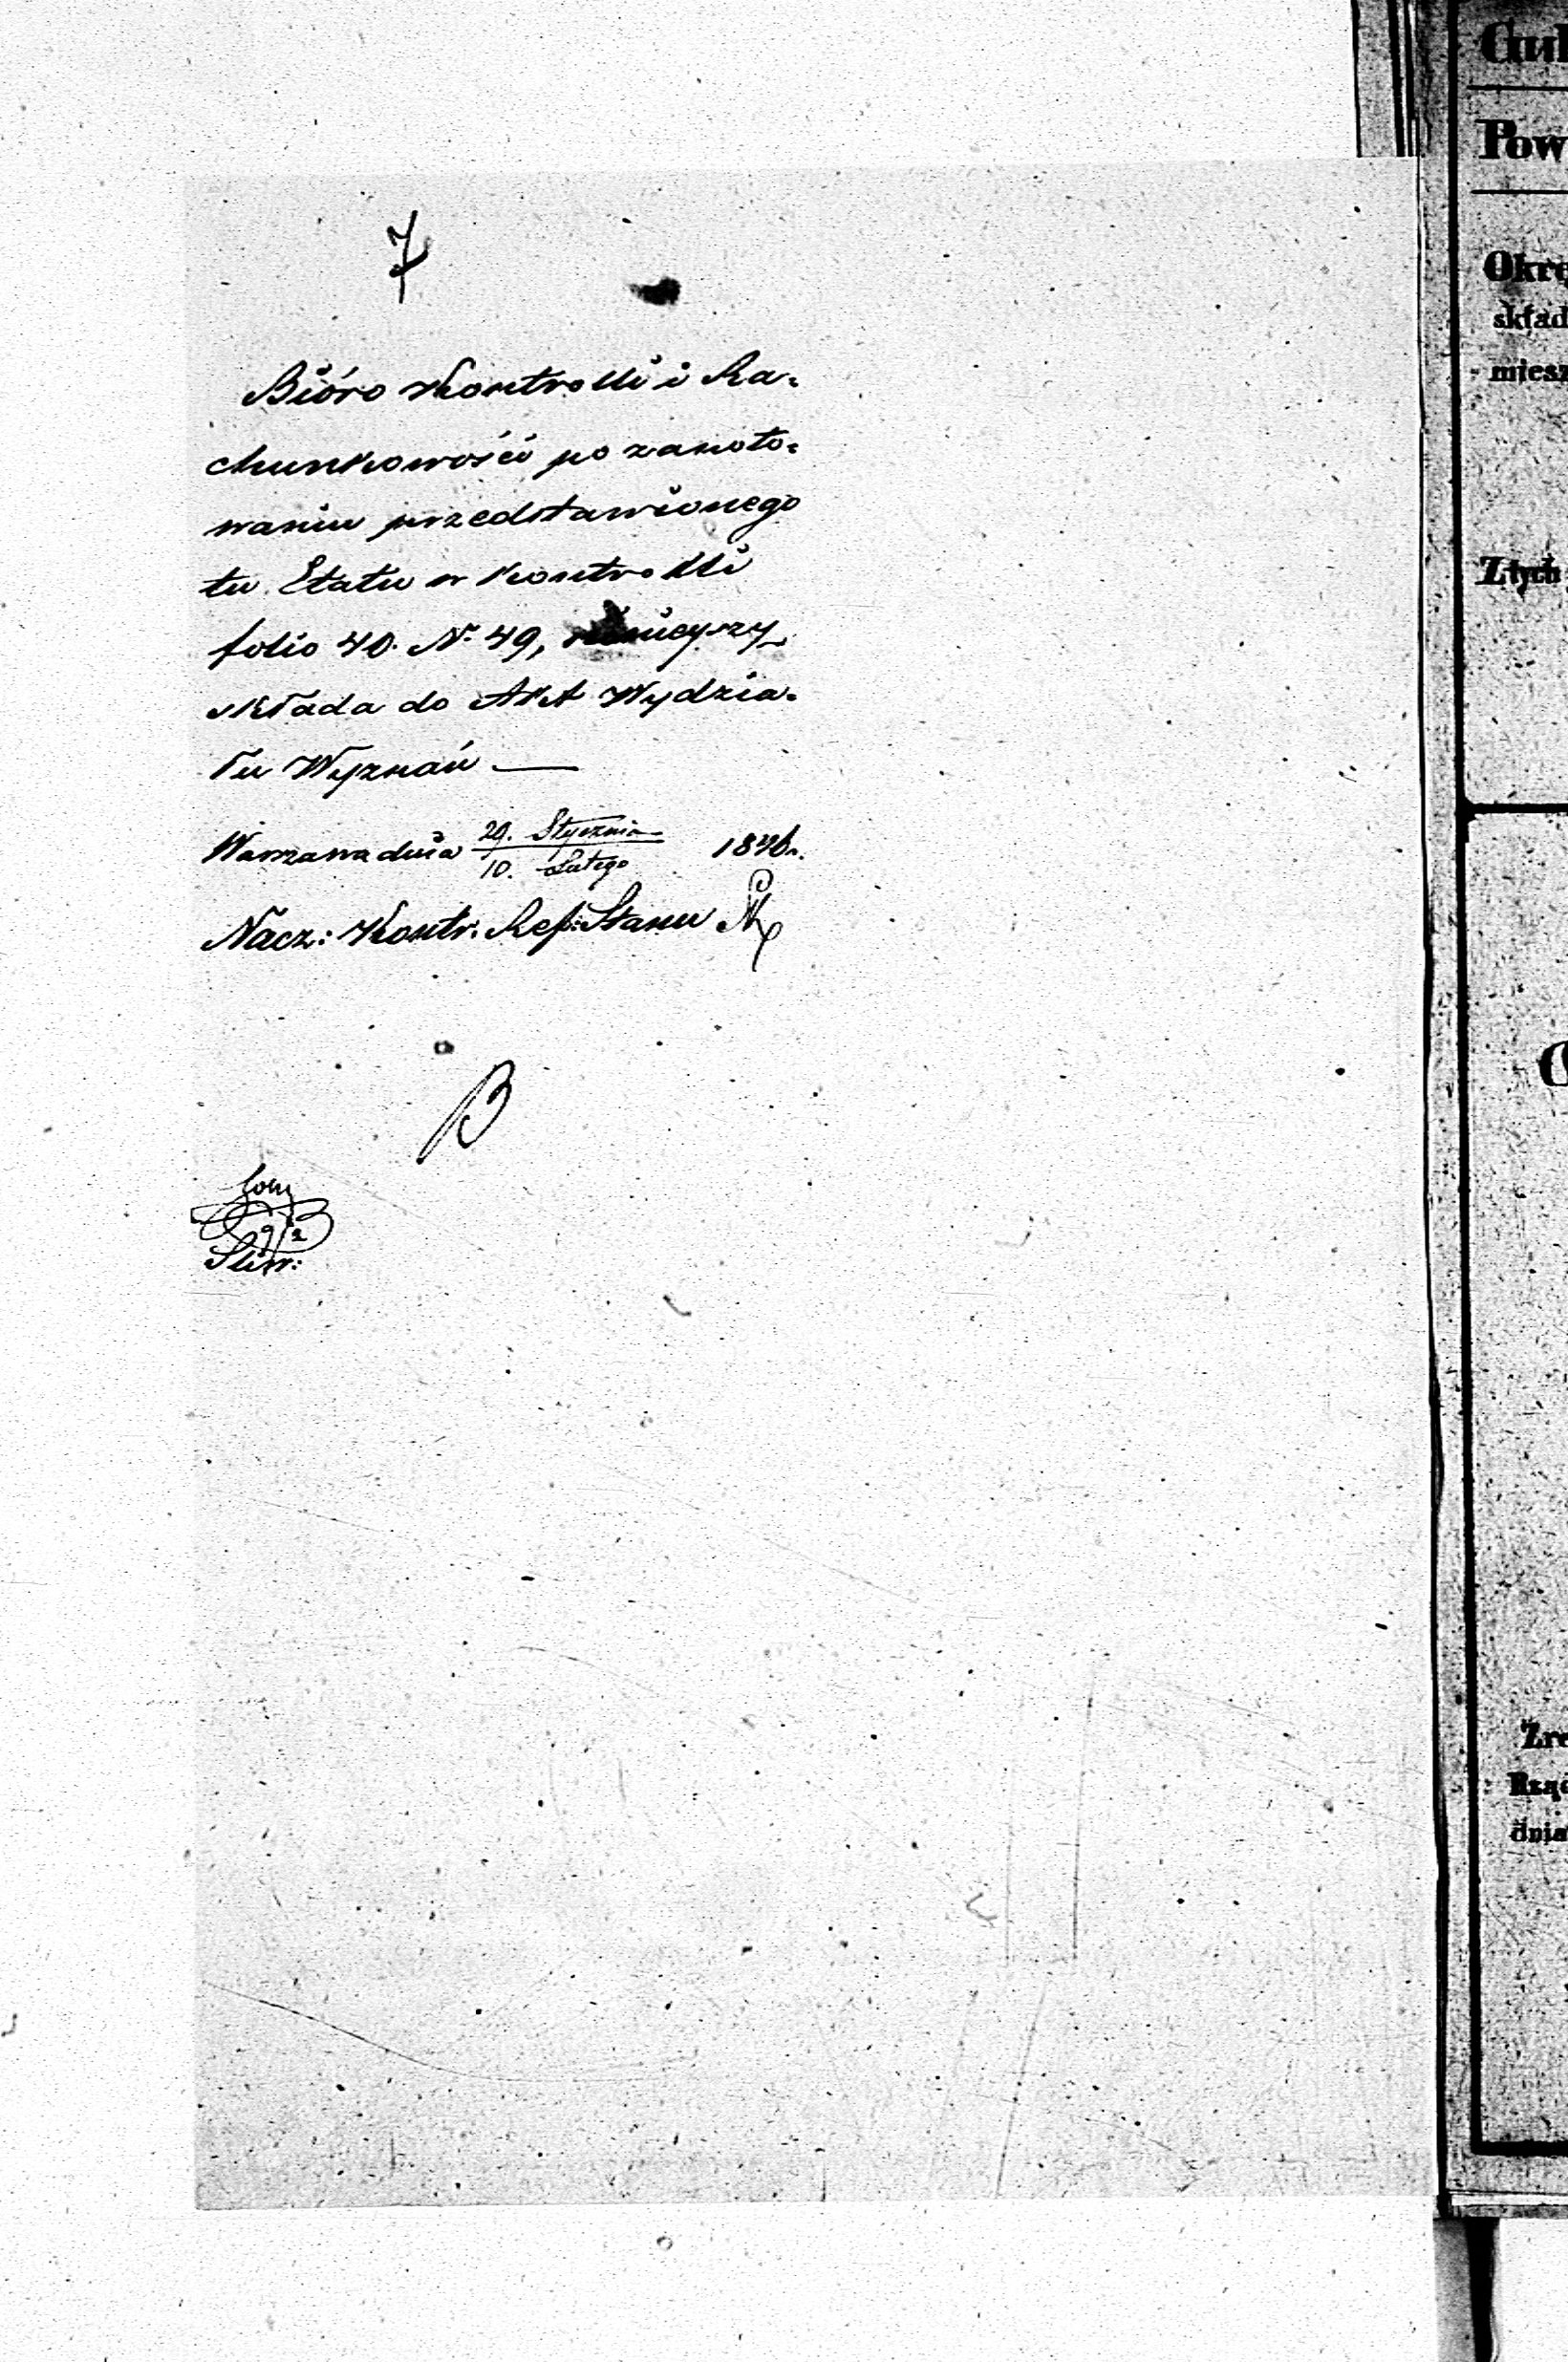 7
Bióro Kontrolli i Ra-
chunkowości po zanoto-
waniu przedstawionego
tu Etatu w Kontrolli
folio 40. No 49, niniejszy
składa do Akt Wydzia-
łu Wyznań —
Warszawa dnia 29. Stycznia / 10. Lutego 1846 r.
Nacz: Kontr: Ref: Stanu
B
9/2
Sliw:
Gub
Pow
Okrę
skład
miesz
Z tych
Zre
Rząd
dnia